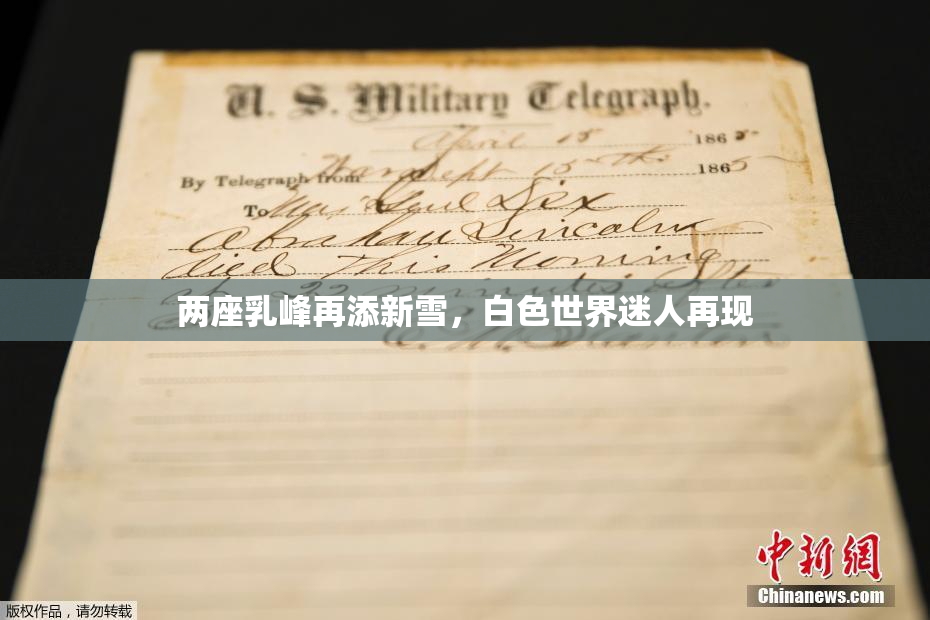 U. S. Military Telegraph.
April 15 1865
By Telegraph from War Dept 15th 1865
To Maj Genl Dix
Abraham Lincoln
died This Morning
at 22 minutes after
两座乳峰再添新雪，白色世界迷人再现
E. M. Stanton
中新网
Chinanews.com
版权作品，请勿转载